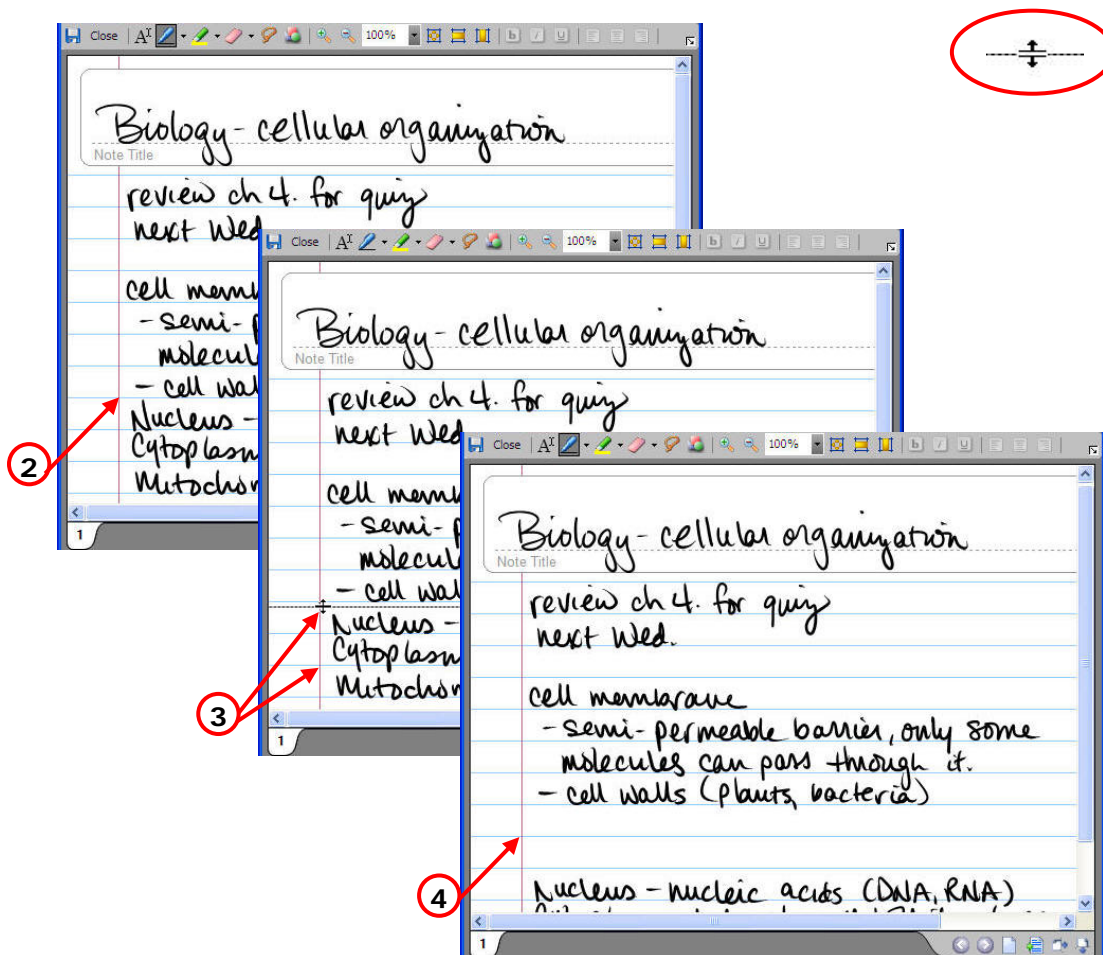 Close 100%
Biology - cellular organization
Note Title
review ch 4. for quiz
next Wed
cell memb
- semi- p
molecul
- cell wal
Nucleus -
Cytoplasm
Mitochon
1
2
Close 100%
Biology - cellular organization
Note Title
review ch 4. for quiz
next Wed
cell memb
- semi- p
molecul
- cell wal
Nucleus -
Cytoplasm
Mitochon
1
3
Close 100%
Biology - cellular organization
Note Title
review ch 4. for quiz
next Wed.
cell membrane
- semi-permeable barrier, only some
molecules can pass through it.
- cell walls (plants, bacteria)
Nucleus - nucleic acids (DNA, RNA)
1
4